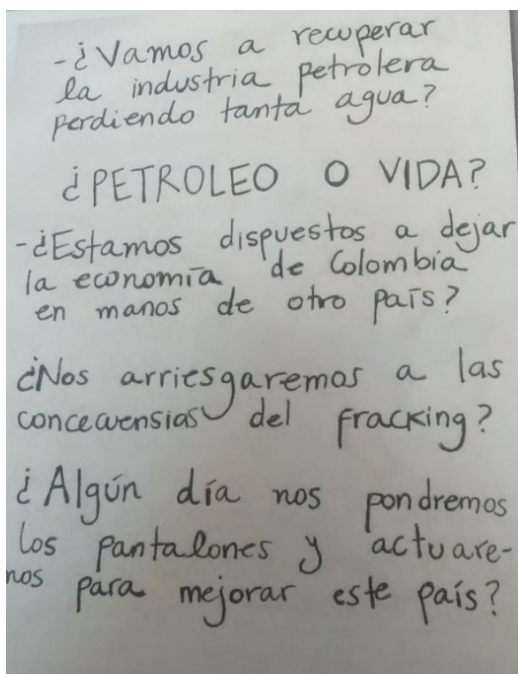 -¿Vamos a recuperar
la industria petrolera
perdiendo tanta agua?
¿PETROLEO O VIDA?
-¿Estamos dispuestos a dejar
la economía de Colombia
en manos de otro país?
¿Nos arriesgaremos a las
concecuensias del fracking?
¿Algún día nos pondremos
los pantalones y actuare-
nos para mejorar este país?